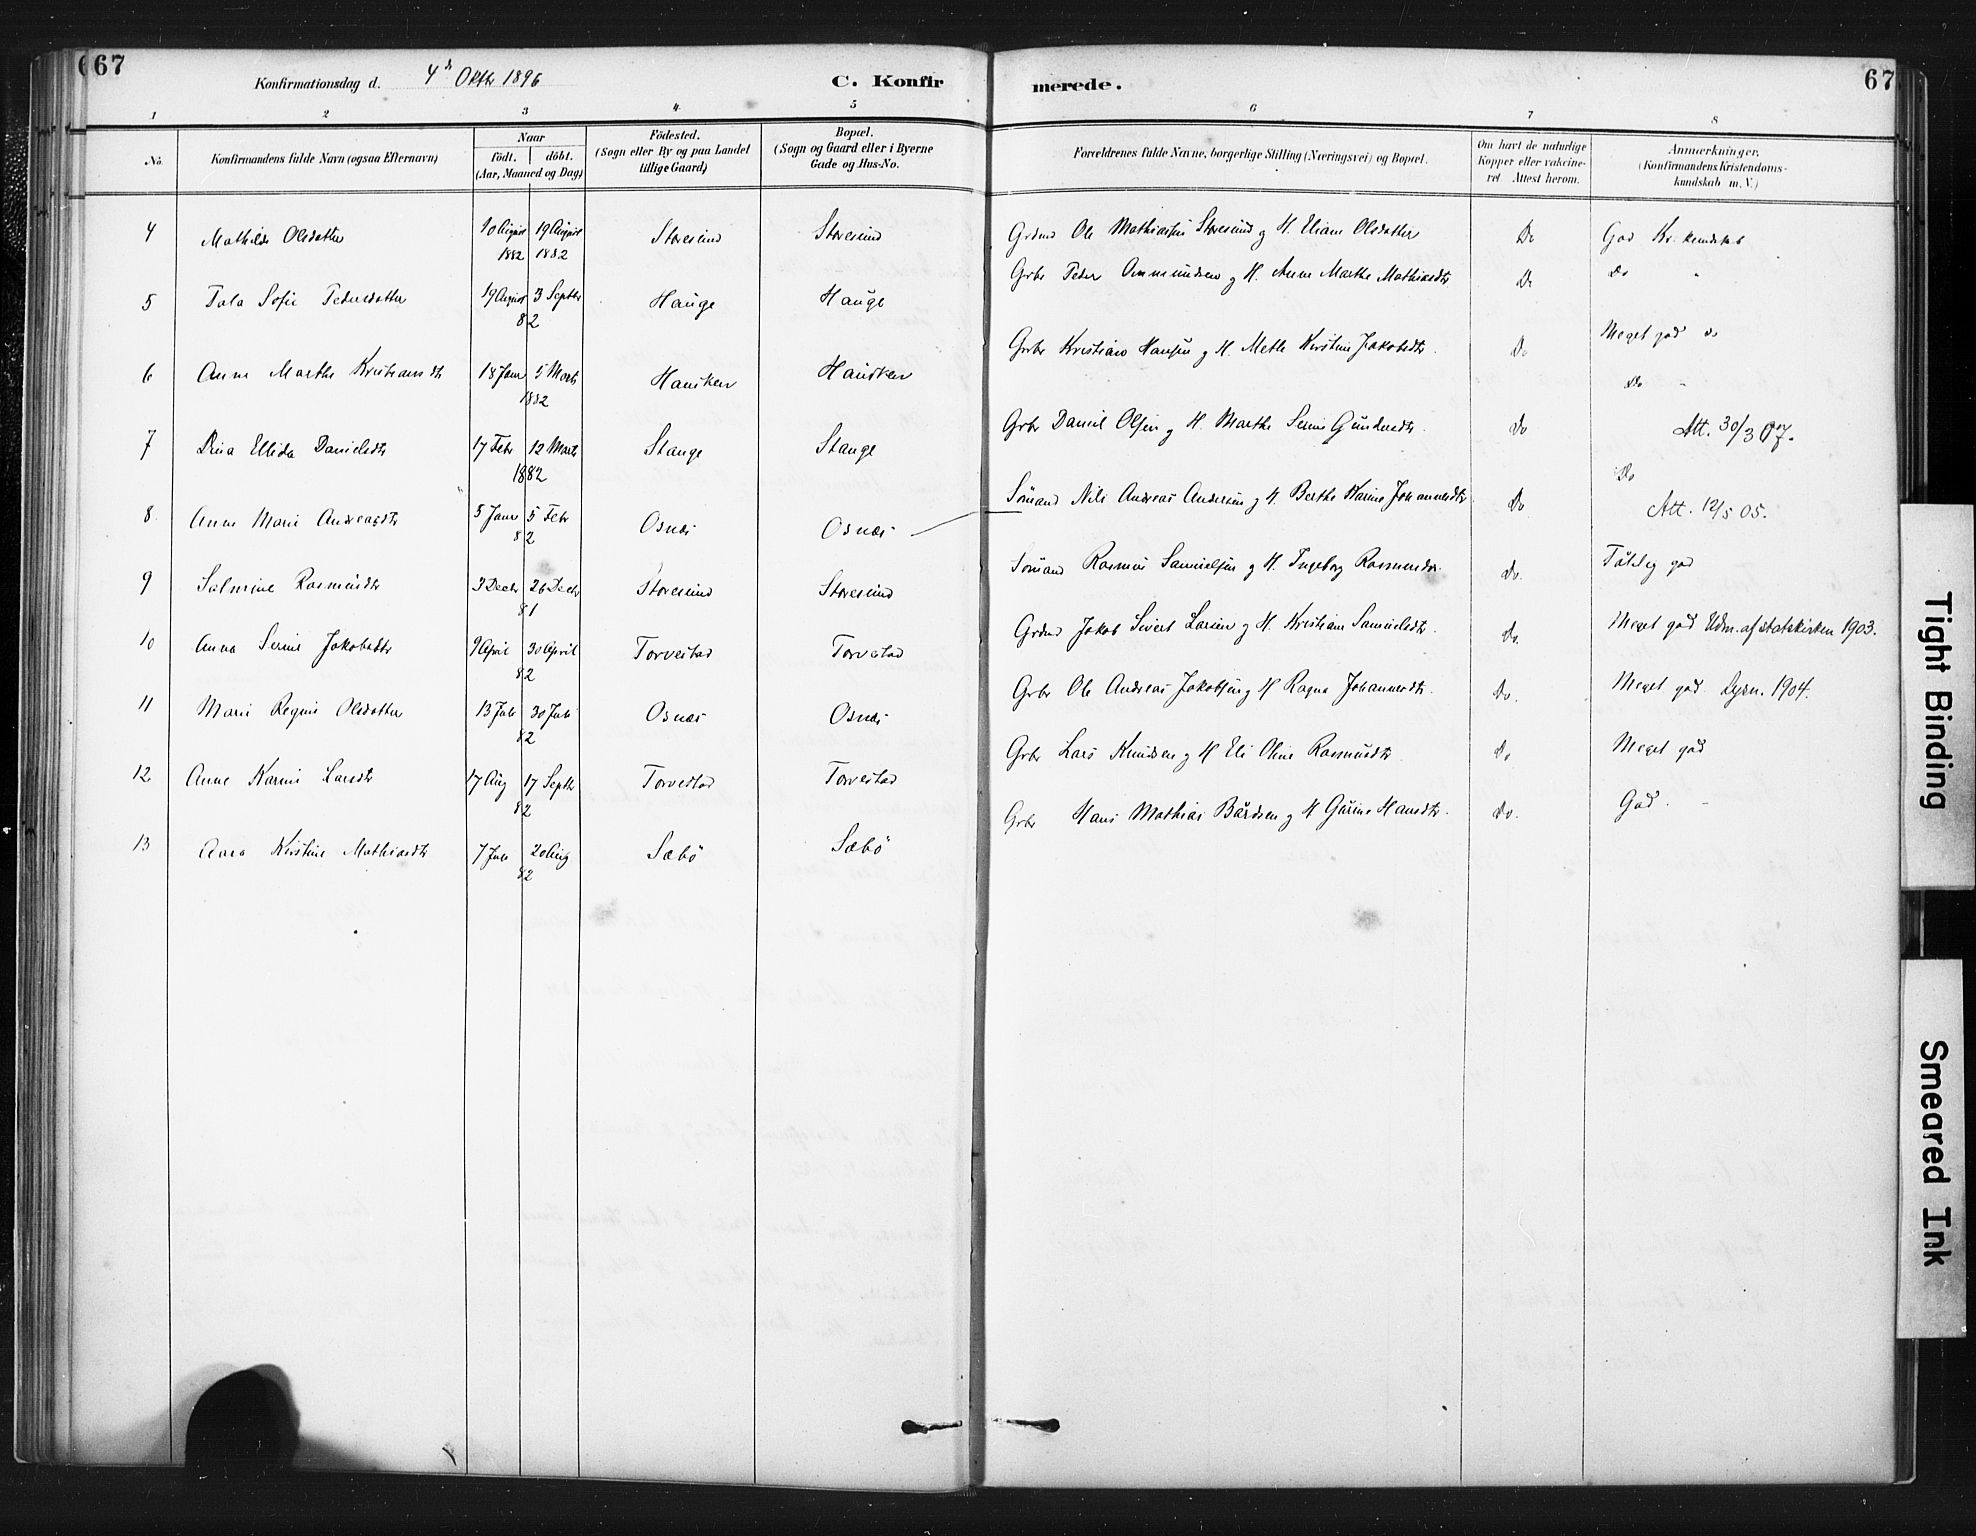 67
Konfirmationsdag d. 4de Oktbr 1896
C. Konfirmerede.
67
1 2 3 4 5 6 7 8
No. Konfirmandens fulde Navn (ogsaa Efternavn) Naar födt. döbt. (Aar, Maaned og Dag) Födested. (Sogn eller By og paa Landet tillige Gaard) Bopæl. (Sogn og Gaard eller i Byerne Gade og Hus-No. Forældrenes fulde Navne, borgerlige Stilling (Næringsvei) og Bopæl. Om havt de naturlige Kopper eller vakcineret. Attest herom. Anmærkninger. (Konfirmandens Kristendomskundskab m. V.)
4 Mathilde Olsdatter 10 August 1882 19 August 1882 Storesund Storesund Grdmd Ole Mathiassen Storesund og H. Eliane Olsdatter Do God Kr. kundskab
5 Tala Sofie Pedersdatter 19 August 3 Septbr 82 Hauge Hauge Grbr Peder Ommundsen og H. Anne Marthe Mathiasdtr Do Do "
6 Anne Marthe Kristiansdtr 18 Janr 5 Marts 1882 Hausken Hausken Grbr Kristian Hansen og H. Mette Kirstine Jakobsdtr. Do Meget god do
7 Dina Ellida Danielsdtr 17 Febr 12 Marts 1882 Stange Stange Grbr Daniel Olsen og H. Marthe Serine Gundersdtr. Do Do " Att. 30/3 07.
8. Anne Marie Andreasdtr 5 Janr 5 Febr 82 Osnæs Osnæs Sömand Nils Andreas Andersen og H. Berthe Karine Johannesdtr Do Do Att. 12/5 05.
9 Salmine Rasmusdtr 3 Decbr 26 Decbr 81 Storesund Storesund Sömand Rasmus Samuelsen og H. Ingeborg Rasmusdtr. Do. god
10 Anna Serine Jakobsdtr 9 April 30 April 82 Torvestad Torvestad Grdmd Jakob Sivert Larsen og H. Kristiane Samuelsdtr. Do. Meget god Udm. af statskirken 1903.
11 Marie Regine Olsdatter 13 Juli 30 Juli 82 Osnæs Osnæs Grbr Ole Andreas Jakobsen og H Ragna Johannesdtr. Do. Meget god. 1904.
12 Anne Karine Larsdtr 17 Aug 17 Septbr 82 Torvestad Torvestad Grbr Lars Knudsen og H Eli Oline Rasmusdtr. Do Meget god
13 Kirstine Mathiasdtr 7 Juli 20 Aug 82 Sæbö Sæbö Grbr Hans Mathias Bårdsen og H Gurine Hansdtr. Do. God.
Tight Binding
Smeared Ink